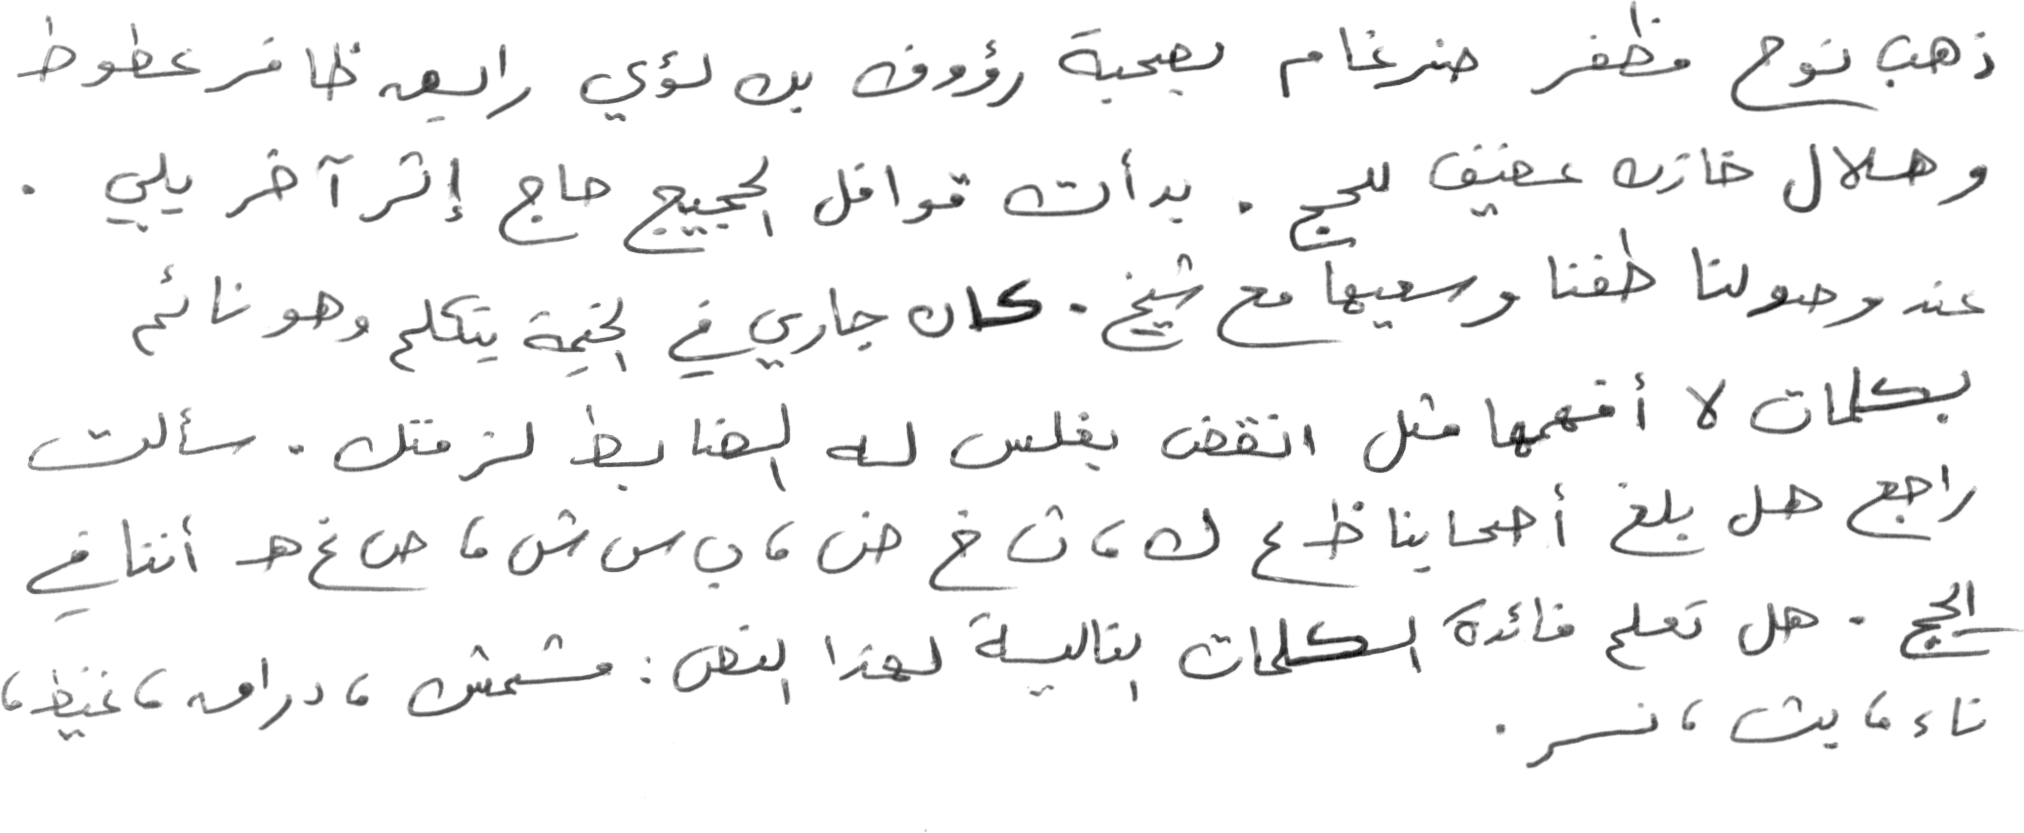 ذهب نوح مظفر ضرغام بصحبة رؤوف بن لؤي رايق ظافر عطوط
وهلال خازن عفيف للحج . بدأت قوافل الحجيج حاج إثر آخر يلبي .
عند وصولنا طفنا وسعيها مع شيخ . كان جاري في الخيمة يتكلم وهو نائم
بكلمات لا أفهمها مثل انقض بغلس له الضابط لزمتك . سألت
راجع هل بلغ أصحابنا ظ ع ك ، ث خ ض ، ب س ش ، ص غ هـ أننا في
الحج . هل تعلم فائدة الكلمات التالية لهذا النص : مشمش ، دراق ، غيظ ،
ناء ، يث ، نسر .